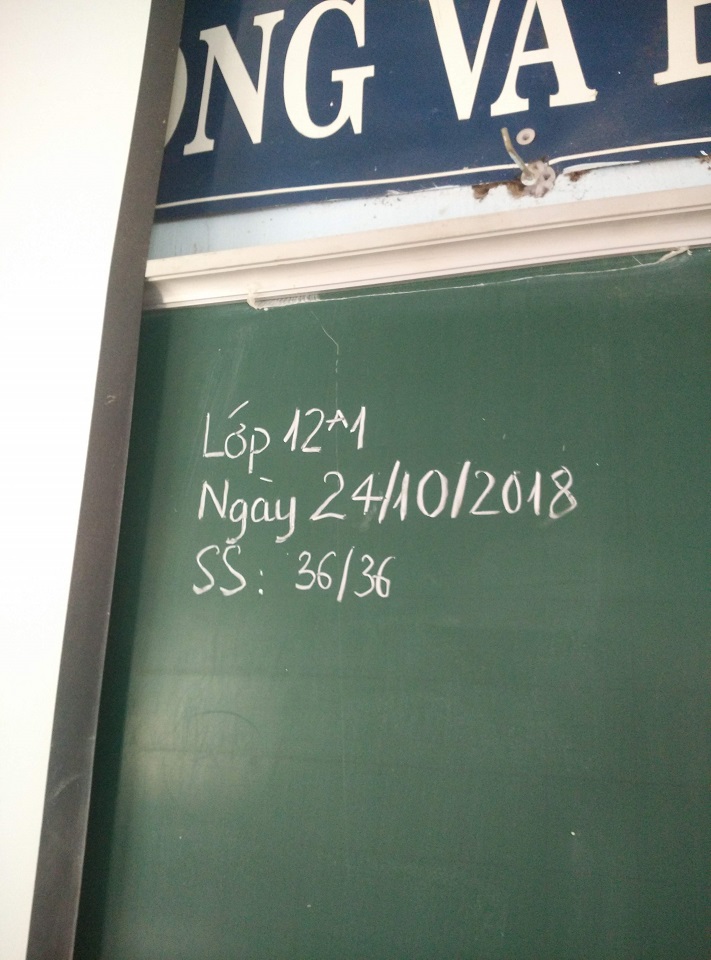 ỌNG VÀ
Lớp 12A1
Ngày 24/10/2018
SS: 36/36